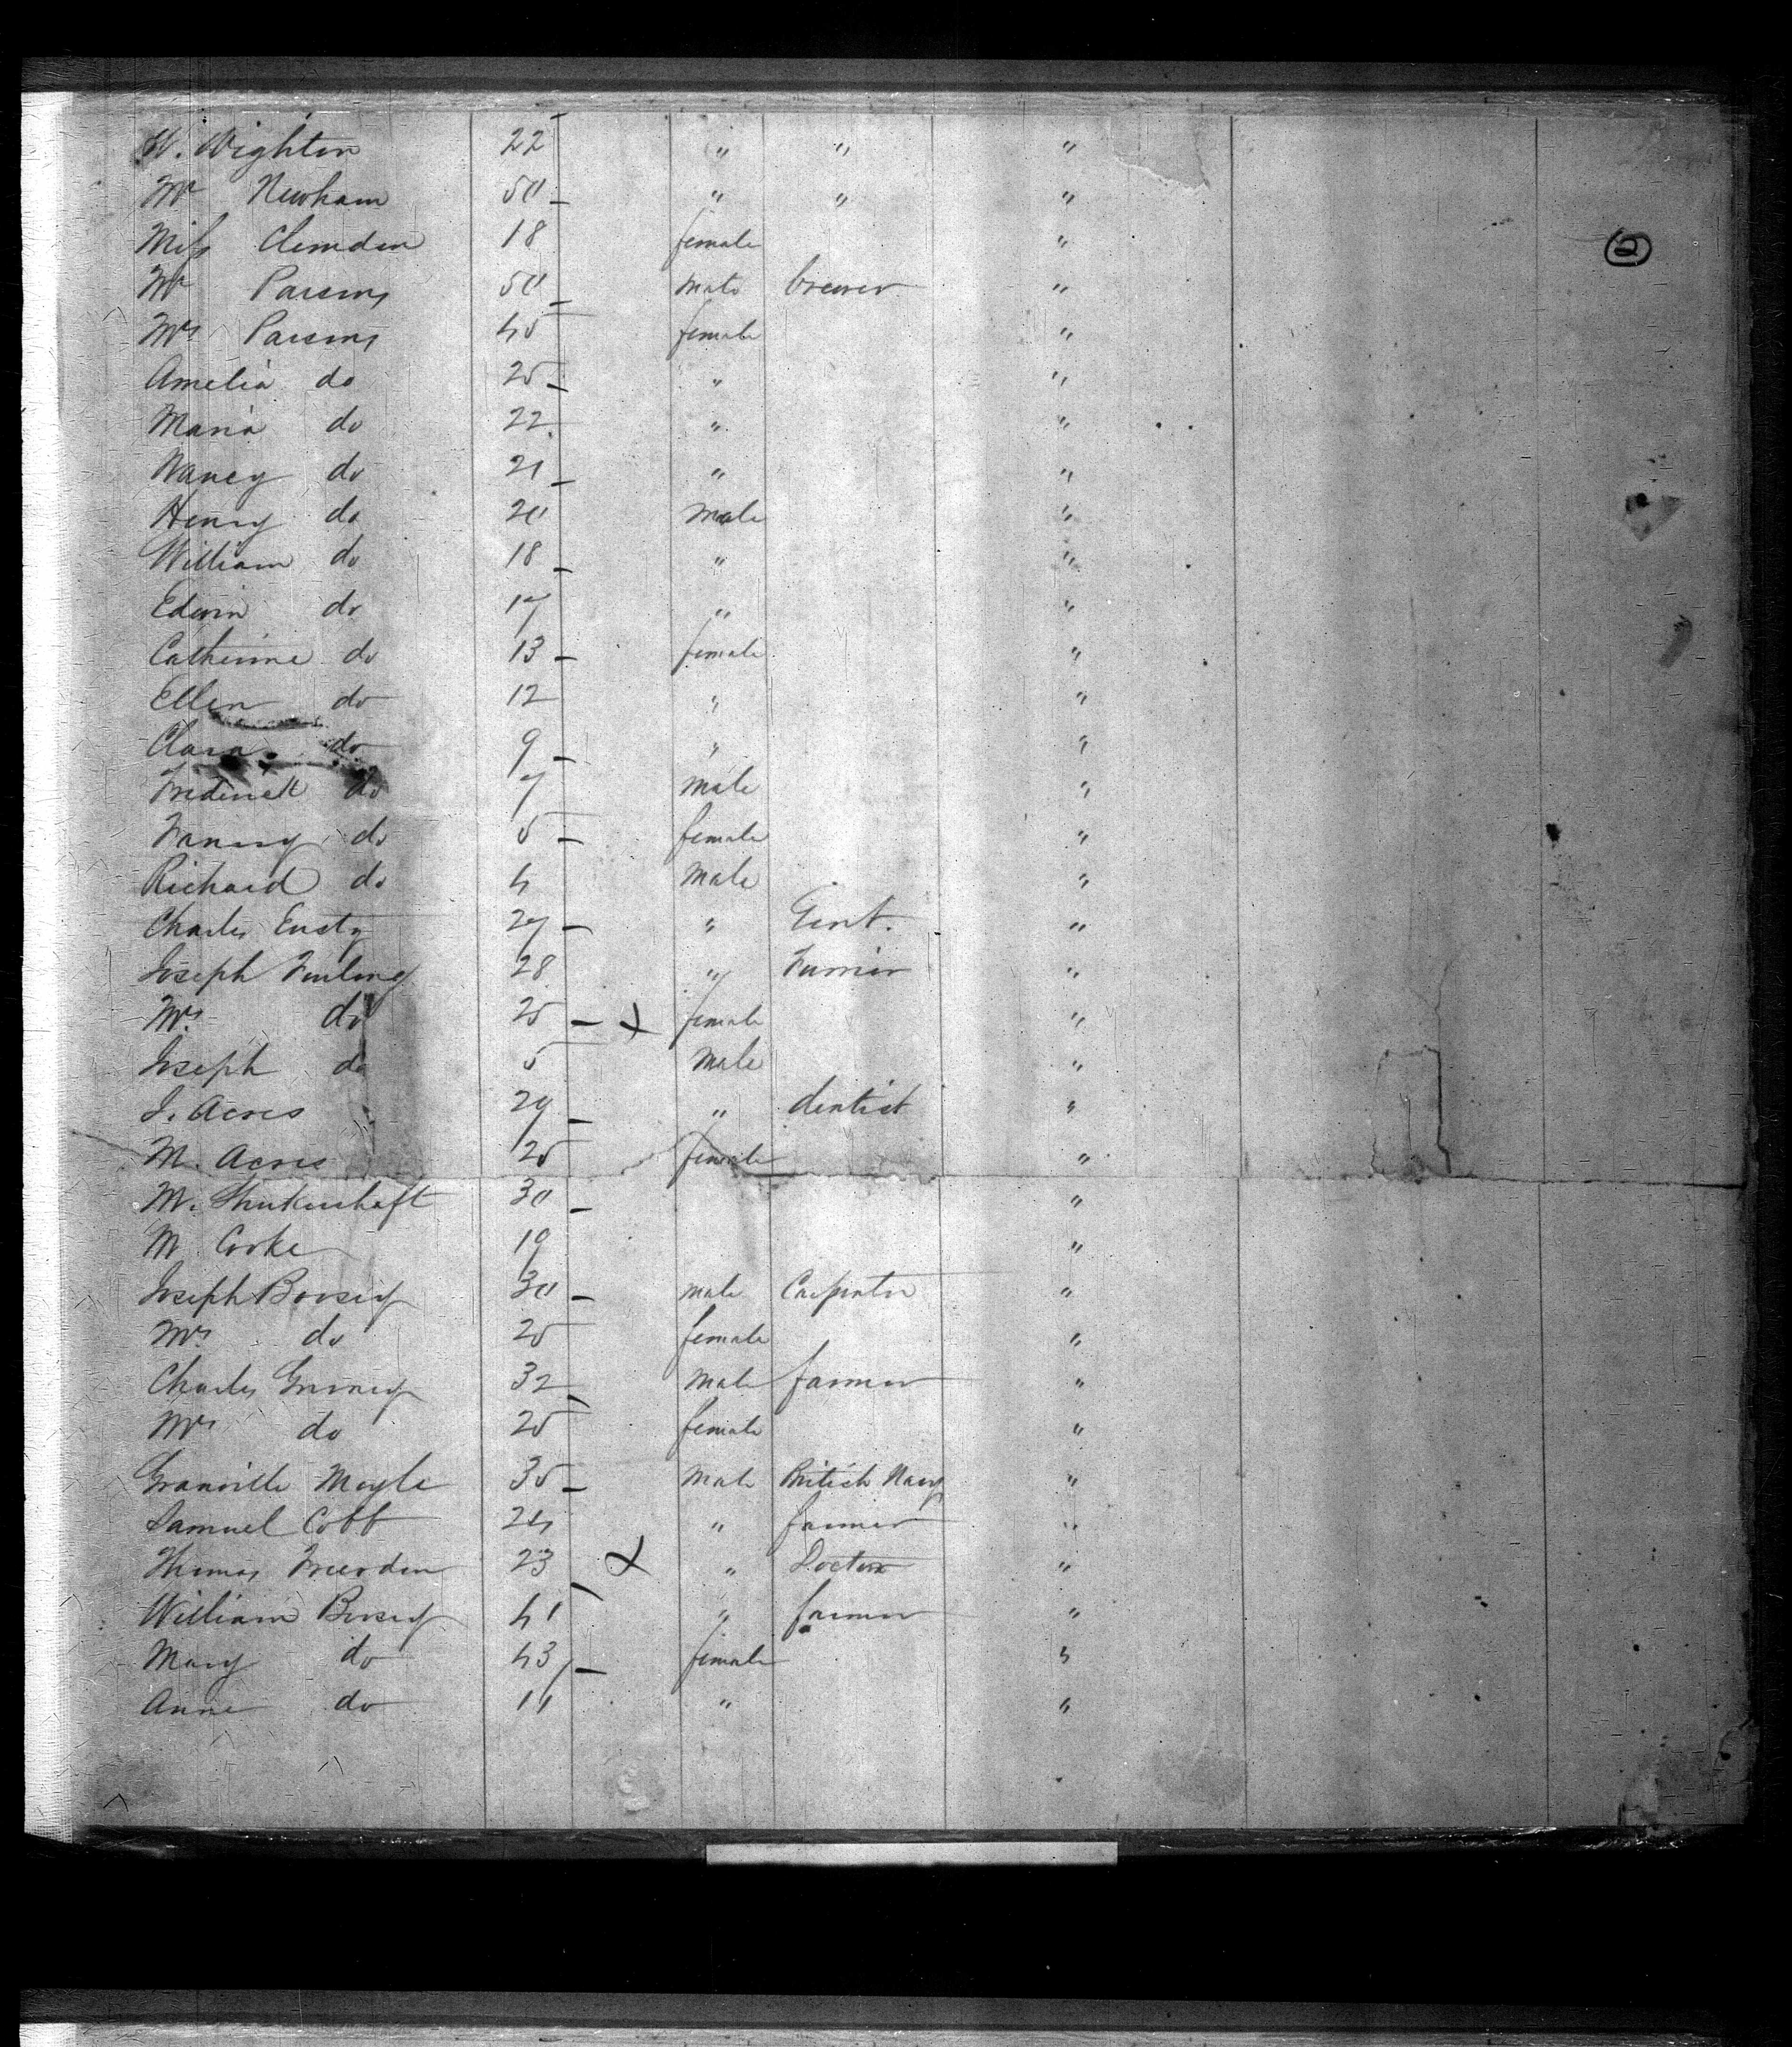 W. Wighton 22 " " "
Mr Newham 50 " " "
Miss Clemden 18 female "
Mr Parsons 50 male brewer "
2
Mrs Parsons 45 female "
Amelia do 25 " "
Maria do 22 " "
Nancy do 21 " "
Henry do 20 male "
William do 18 " "
Edwin do 17 " "
Catherine do 13 female "
Ellen do 12 " "
Clara do 9 " "
Frederick do 7 male "
Fanny do 5 female "
Richard do 4 male "
Charles 27 " Gent. "
Joseph Furlong 28 " Furrier "
Mrs. do 25 x female "
Joseph do 5 male "
J. Acres 29 " dentist "
M. Acres 25 female "
M. 30 "
M. Cooke 19 "
Joseph Boosey 30 male Carpenter "
Mrs do 25 female "
Charles 32 male farmer "
Mrs do 25 female "
Granville Moyle 35 male British Navy "
Samuel Cobb 24 " farmer "
Thomas 23 x " Doctor "
William Boosey 41 " farmer "
Mary do 43 female "
Anne do 11 " "